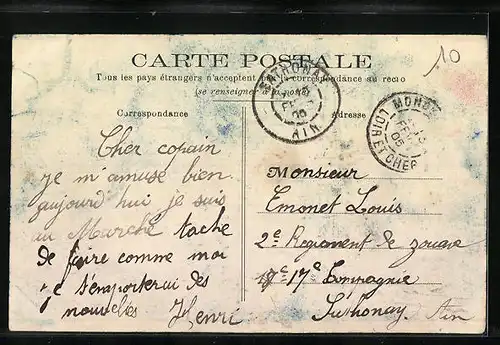 10
CARTE POSTALE
Tous les pays étrangers n'acceptent pas la correspondance au recto
(se renseigner à la poste)
SATHONAY
AIN
MONDO
LOIR ET CHER
Correspondance
Adresse
Cher copain
je m'amuse bien
aujourd hui je suis
au Marché tache
de faire comme moi
je t'emporterai des
nouvelles Henri
Monsieur
Emonet Louis
2e Regiment de zouave
17e Compagnie
Sathonay Ain